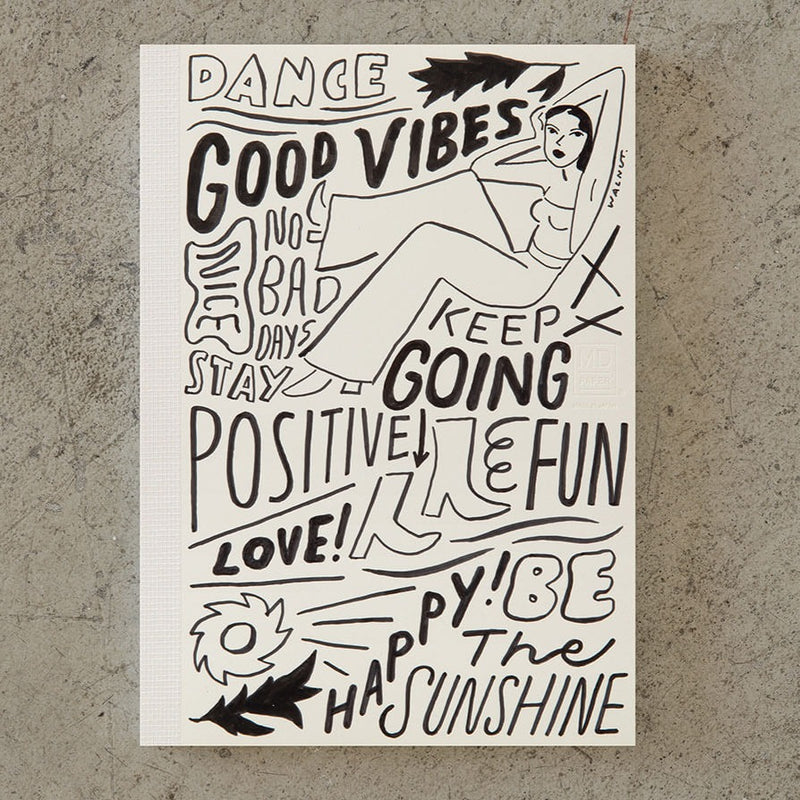 DANCE
GOOD VIBES
WALNUT.
NO
BAD
DAYS
NICE
KEEP
GOING
STAY
POSITIVE
& FUN
LOVE!
HAPPY!
BE
The
SUNSHINE
MD
PAPER